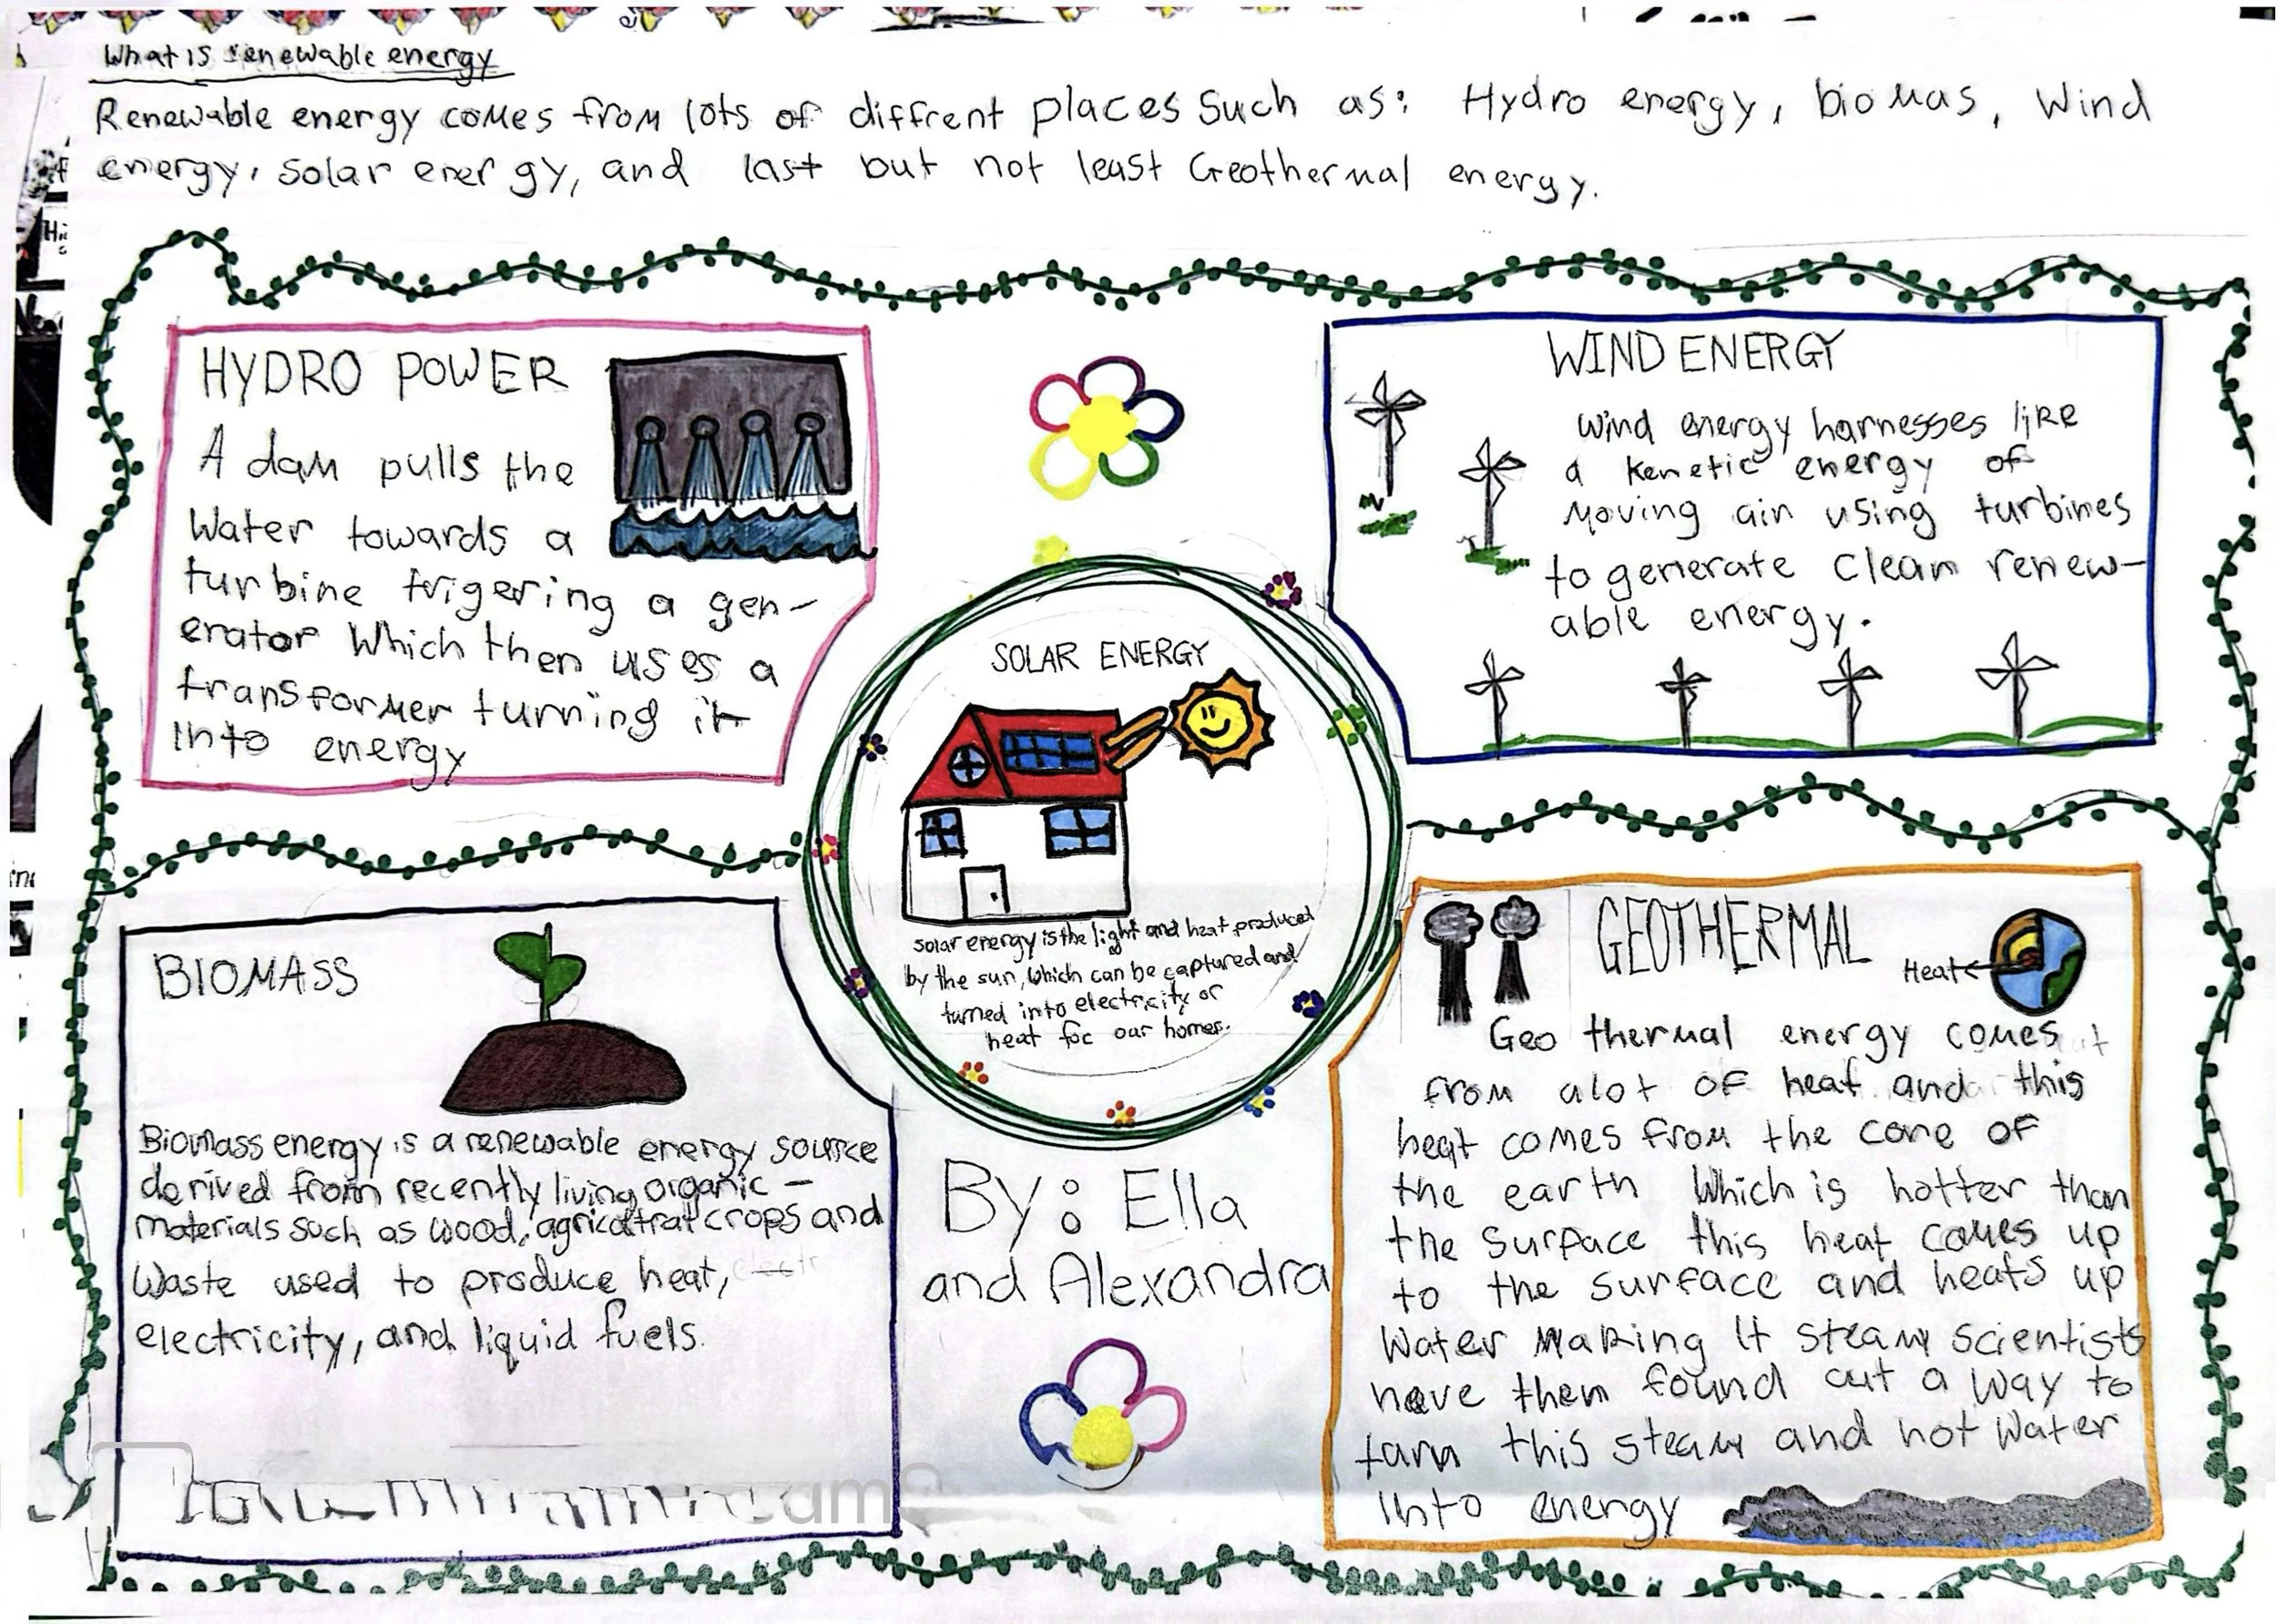 What is renewable energy
Renewable energy comes from lots of diffrent places such as: Hydro energy, biomas, Wind
energy, solar energy, and last but not least Geothermal energy.
HYDRO POWER
A dam pulls the
Water towards a
turbine trigering a gen-
erator Which then uses a
transformer turning it
Into energy
WIND ENERGY
Wind energy harnesses like
a kenetic energy of
Moving air using turbines
to generate clean renew-
able energy.
SOLAR ENERGY
solar energy is the light and heat produced
by the sun, which can be captured and
turned into electricity or
heat for our homes.
BIOMASS
Biomass energy is a renewable energy source
derived from recently living organic -
materials such as wood, crops and
Waste used to produce heat,
electricity, and liquid fuels.
By: Ella
and Alexandra
GEOTHERMAL
Heat
Geo thermal energy comes
from alot of heat and this
heat comes from the core of
the earth Which is hotter than
the surface this heat comes up
to the surface and heats up
Water Making It steam scientists
have then found out a way to
turn this steam and hot Water
Into energy